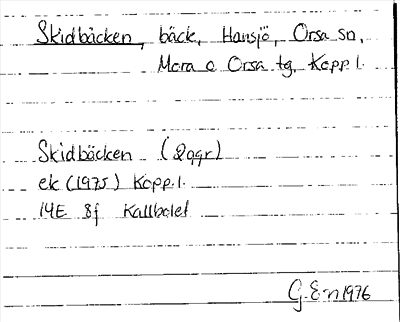 Skidbäcken, bäck, Hansjö, Orsa sn,
Mora o Orsa tg, Kopp. l.
Skidbäcken (2ggr)
ek (1975) Kopp. l.
14E 8f Kallbolet
G. E-n 1976